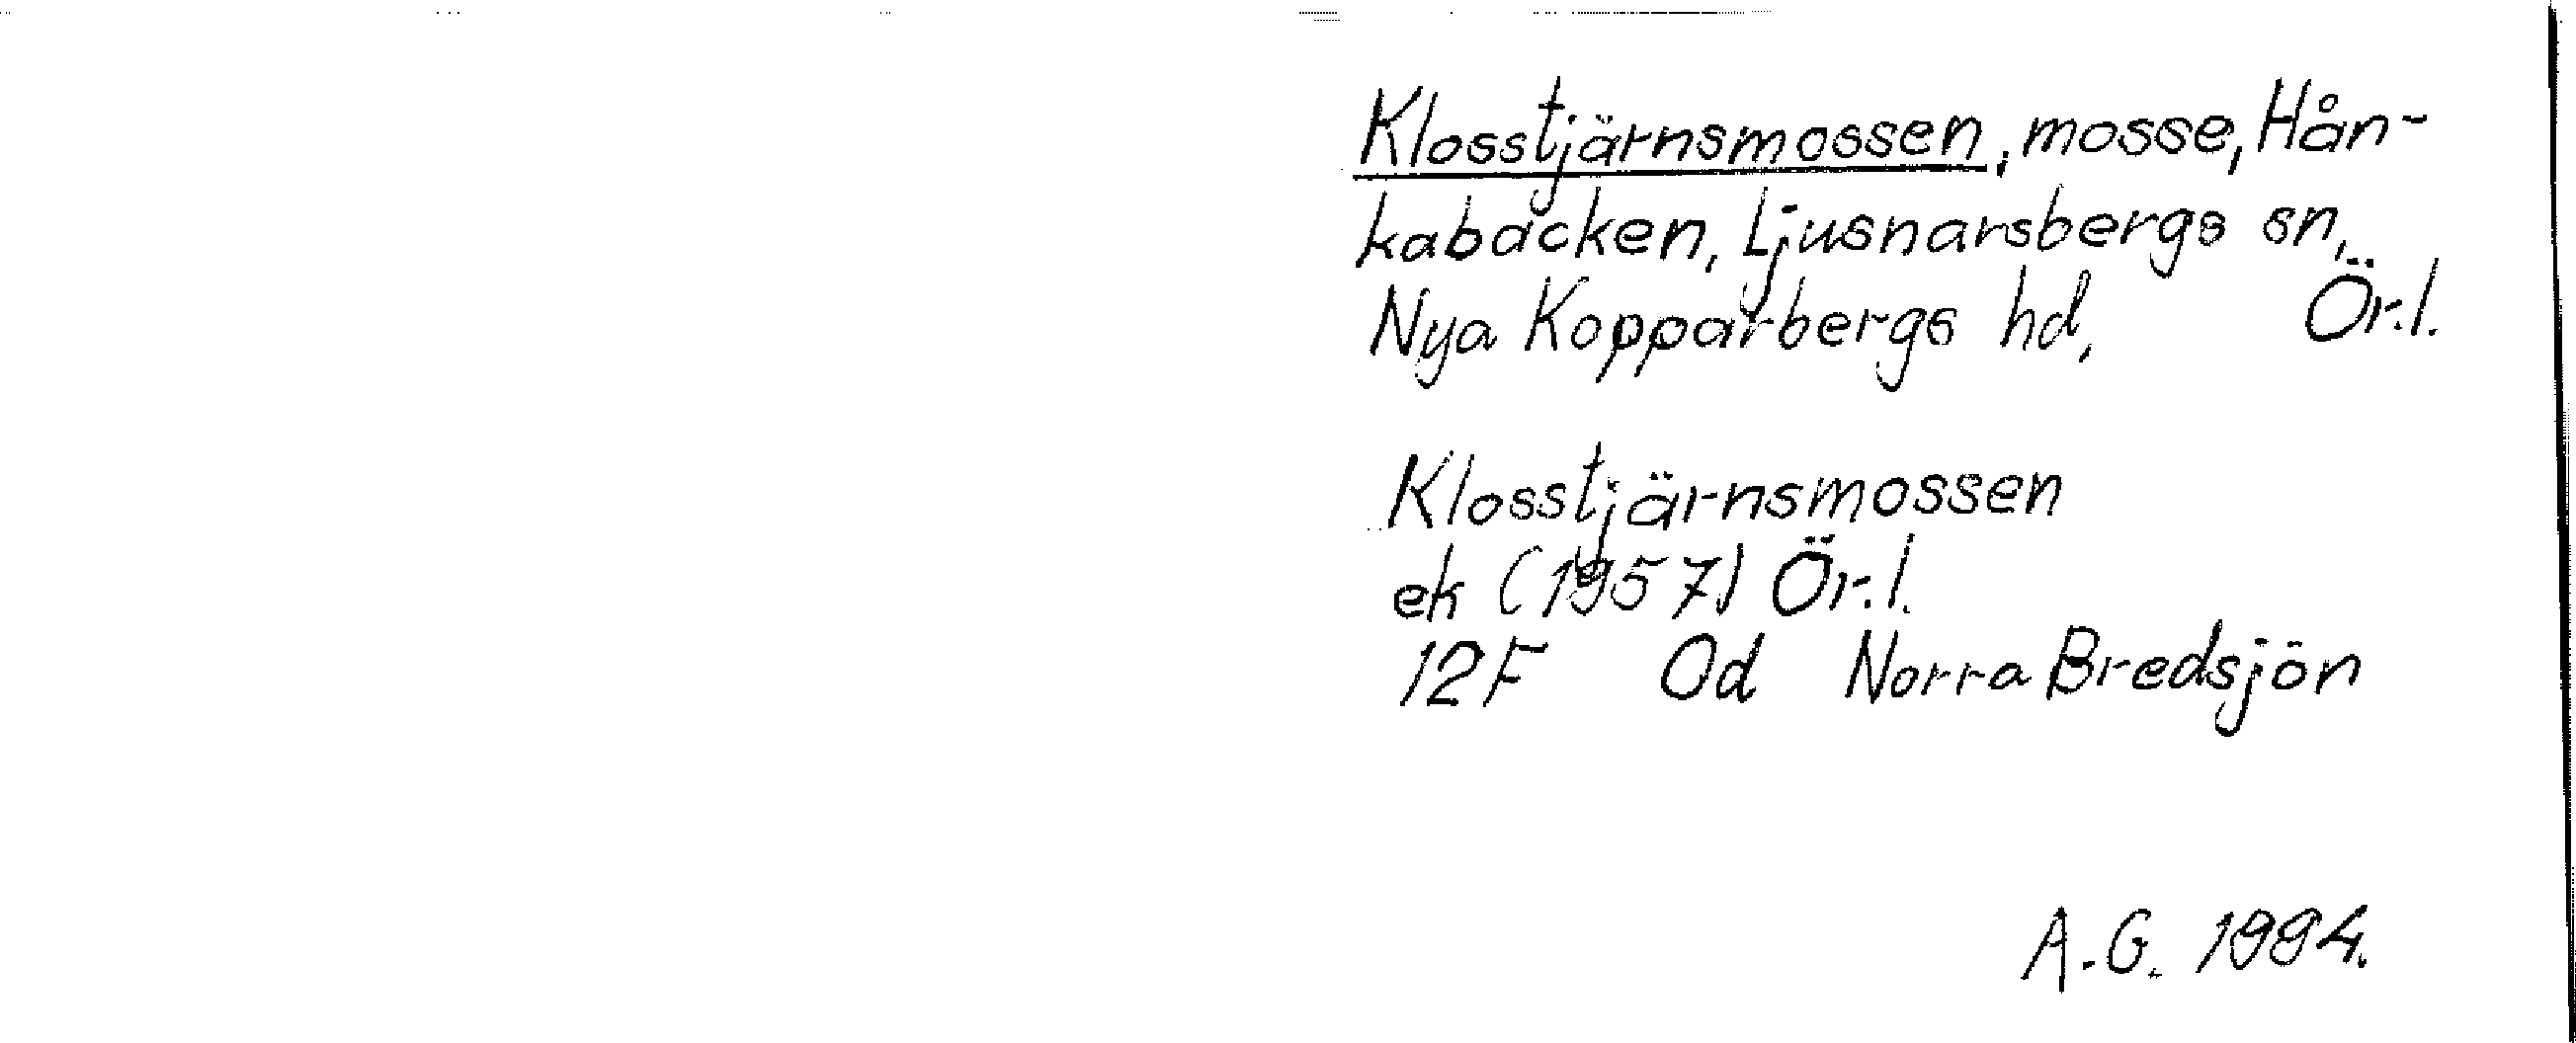 Klosstjärnsmossen, mosse, Hån-
kabacken, Ljusnarsbergs sn,
Nya Kopparbergs hd, Ör.l.
Klosstjärnsmossen
ek (1957) Ör.l.
12F Od Norra Bredsjön
A.G. 1994.